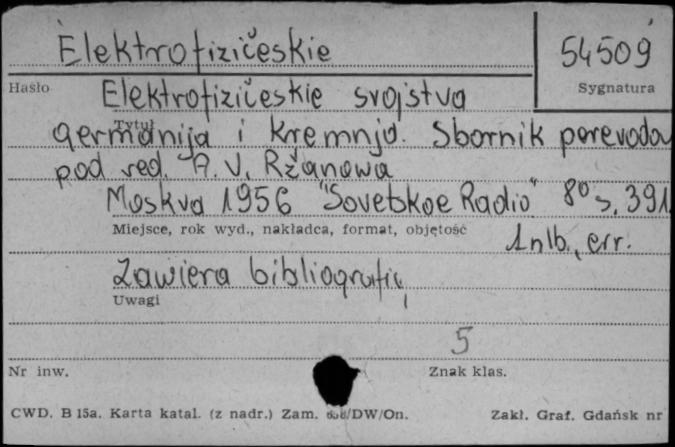 Elektrofizičeskie 54509
Hasło Sygnatura
Elektrofizičeskie svojstva
Tytuł
germanija i kremnja. Sbornik perevodov
pod red. A. V. Ržanowa
Moskva 1956 "Sovetskoe Radio" 8° s. 391
Miejsce, rok wyd., nakładca, format, objętość
1 nlb., err.
Zawiera bibliografię
Uwagi
5
Nr inw. Znak klas.
CWD. B 15a. Karta katal. (z nadr.) Zam. /DW/On. Zakł. Graf. Gdańsk nr